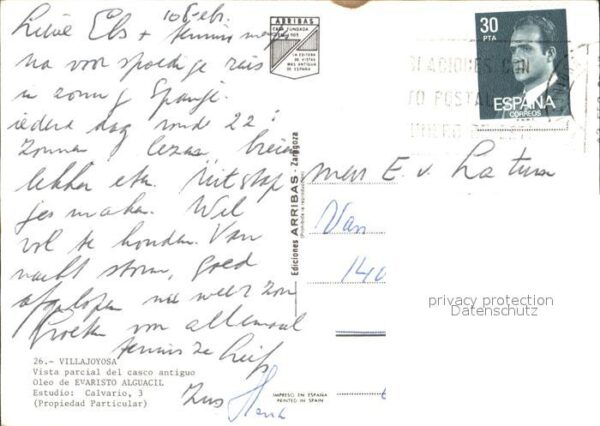 10 Febr.
Lieve Els +
na voor spoedige reis
in zonnig Spanje.
iedere dag rond 22°
Zonnen lezen breien
lekker eten. Uitstap
jes maken. Wel
vol te houden. Van
nacht storm, goed
afgelopen nu weer zon
Groeten van allemaal
Zus
ARRIBAS
CASA FUNDADA
LA EDITORA
DE VISTAS
MAS ANTIGUA
DE ESPAÑA
30
PTA
ESPAÑA
CORREOS
Ediciones ARRIBAS - Zaragoza
(Prohibida la reproducción)
Mevr E. v.
Van
140
privacy protection
Datenschutz
26.- VILLAJOYOSA
Vista parcial del casco antiguo
Oleo de EVARISTO ALGUACIL
Estudio: Calvario, 3
(Propiedad Particular)
IMPRESO EN ESPAÑA
PRINTED IN SPAIN